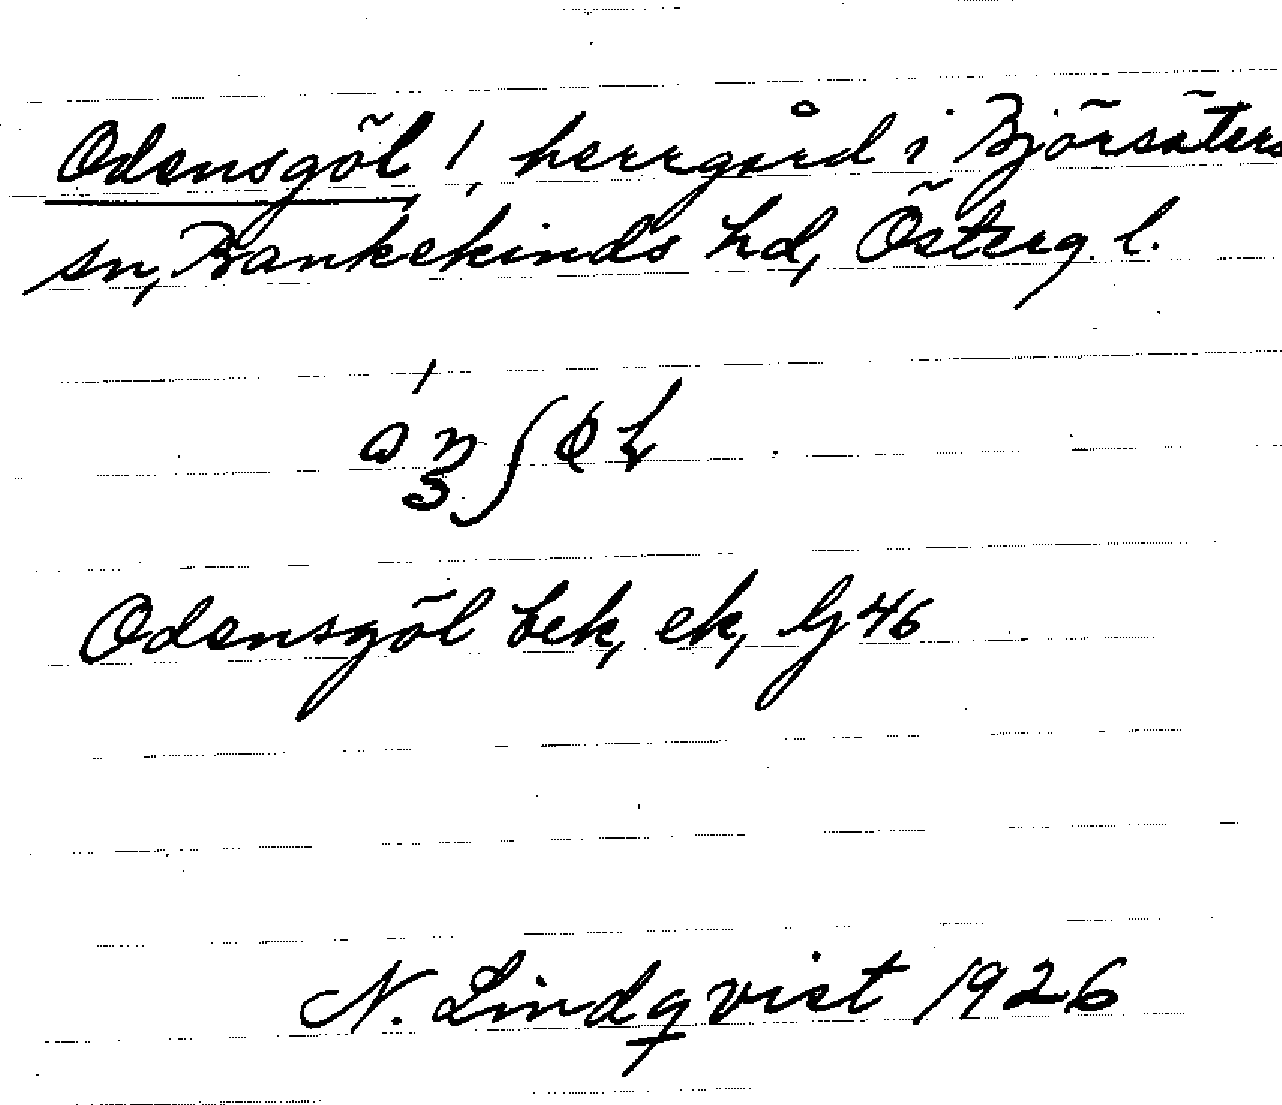 Odensgöl !, herrgård i Björsäters
sn, Bankekinds hd, Österg. l.
Odensgöl bek, ek, Gj 46
N. Lindqvist 1926